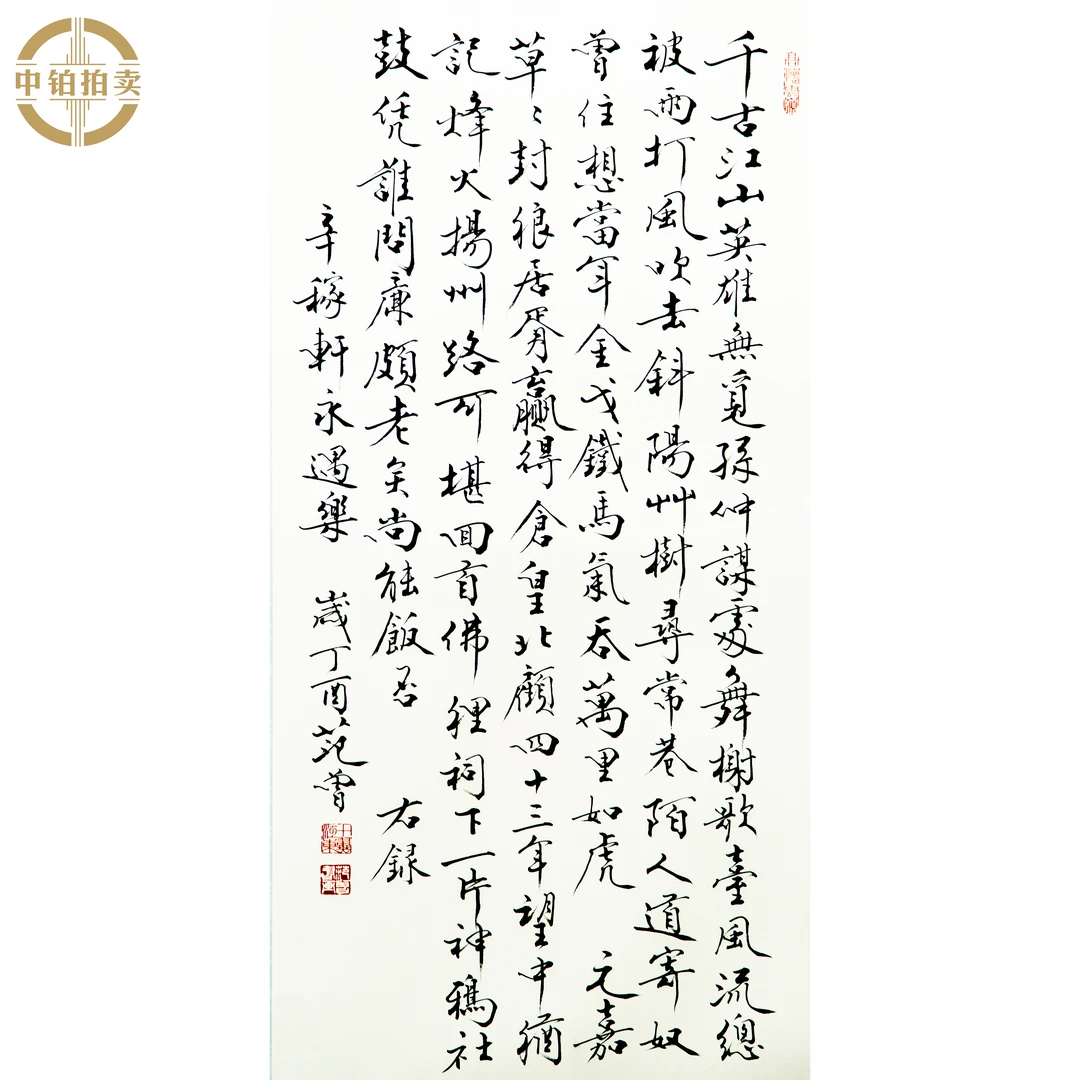 中铂拍卖
千古江山英雄無覓孫仲謀處舞榭歌臺風流總
被雨打風吹去斜陽艸樹尋常巷陌人道寄奴
曾住想當年金戈鐵馬氣吞萬里如虎 元嘉
草〻封狼居胥贏得倉皇北顧四十三年望中猶
記烽火揚州路可堪囬首佛狸祠下一片神鴉社
鼓凭誰問廉頗老矣尚能飯否 右録
辛稼軒永遇樂 歲丁酉范曾